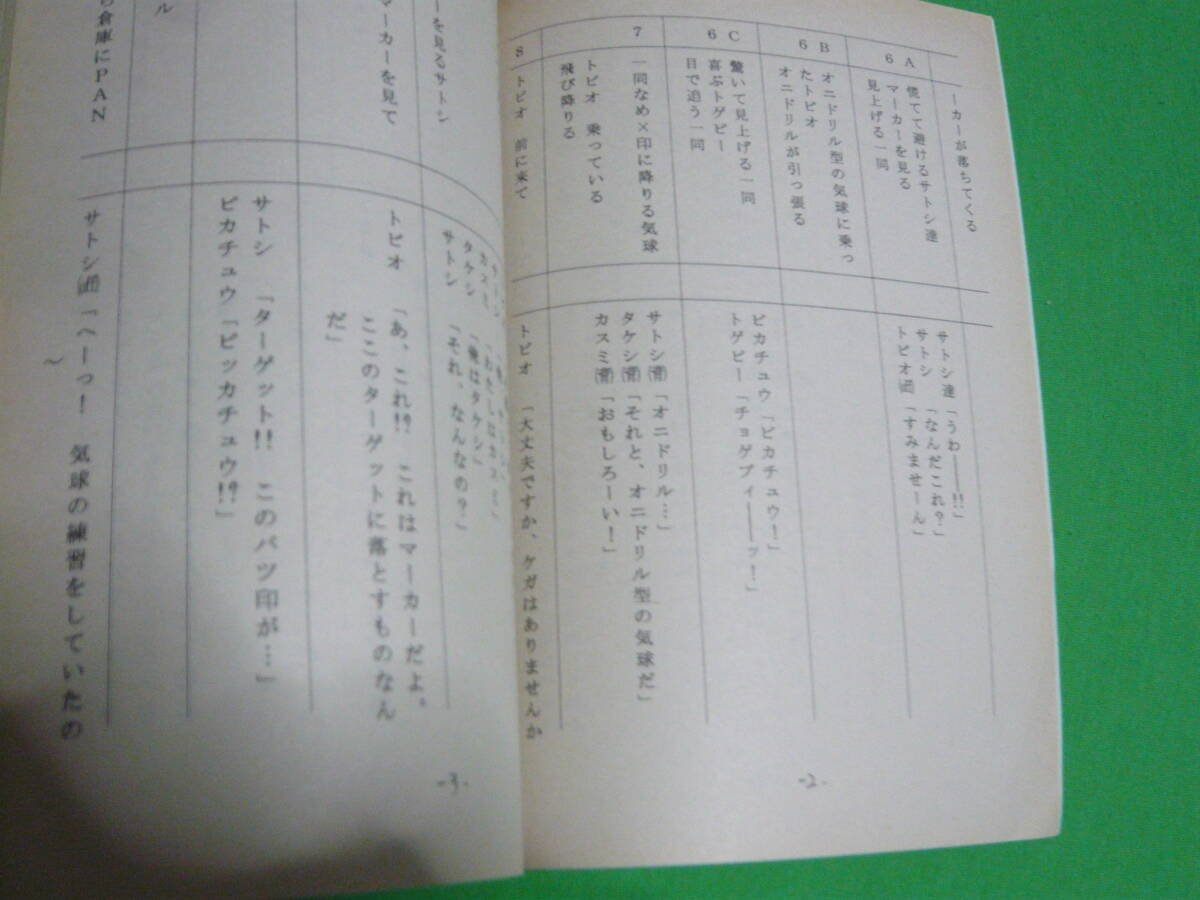 ーカーが落ちてくる
6A
慌てて避けるサトシ達
マーカーを見る
見上げる一同
サトシ達「うわ――!!」
サトシ「なんだこれ?」
トビオ「すみませーん」
6B
オニドリル型の気球に乗っ
たトビオ
オニドリルが引っ張る
6C
驚いて見上げる一同
喜ぶトゲピー
目で追う一同
ピカチュウ「ピカチュウ!」
トゲピー「チョゲプィ――ッ!」
7
一同なめ×印に降りる気球
トビオ 乗っている
飛び降りる
サトシ「オニドリル…」
タケシ「それと、オニドリル型の気球だ」
カスミ「おもしろーい!」
8
トビオ 前に来て
トビオ「大丈夫ですか、ケガはありませんか
-2-
カスミ「わたしはカスミ」
タケシ「俺はタケシ」
サトシ「それ、なんなの?」
ーを見るサトシ
トビオ「あ、これ!? これはマーカーだよ。
ここのターゲットに落とすものなん
だ」
マーカーを見て
サトシ「ターゲット!! このバツ印が…」
ピカチュウ「ピッカチュウ!?」
ル
ら倉庫にPAN
サトシ「へーっ! 気球の練習をしていたの
〜
-3-